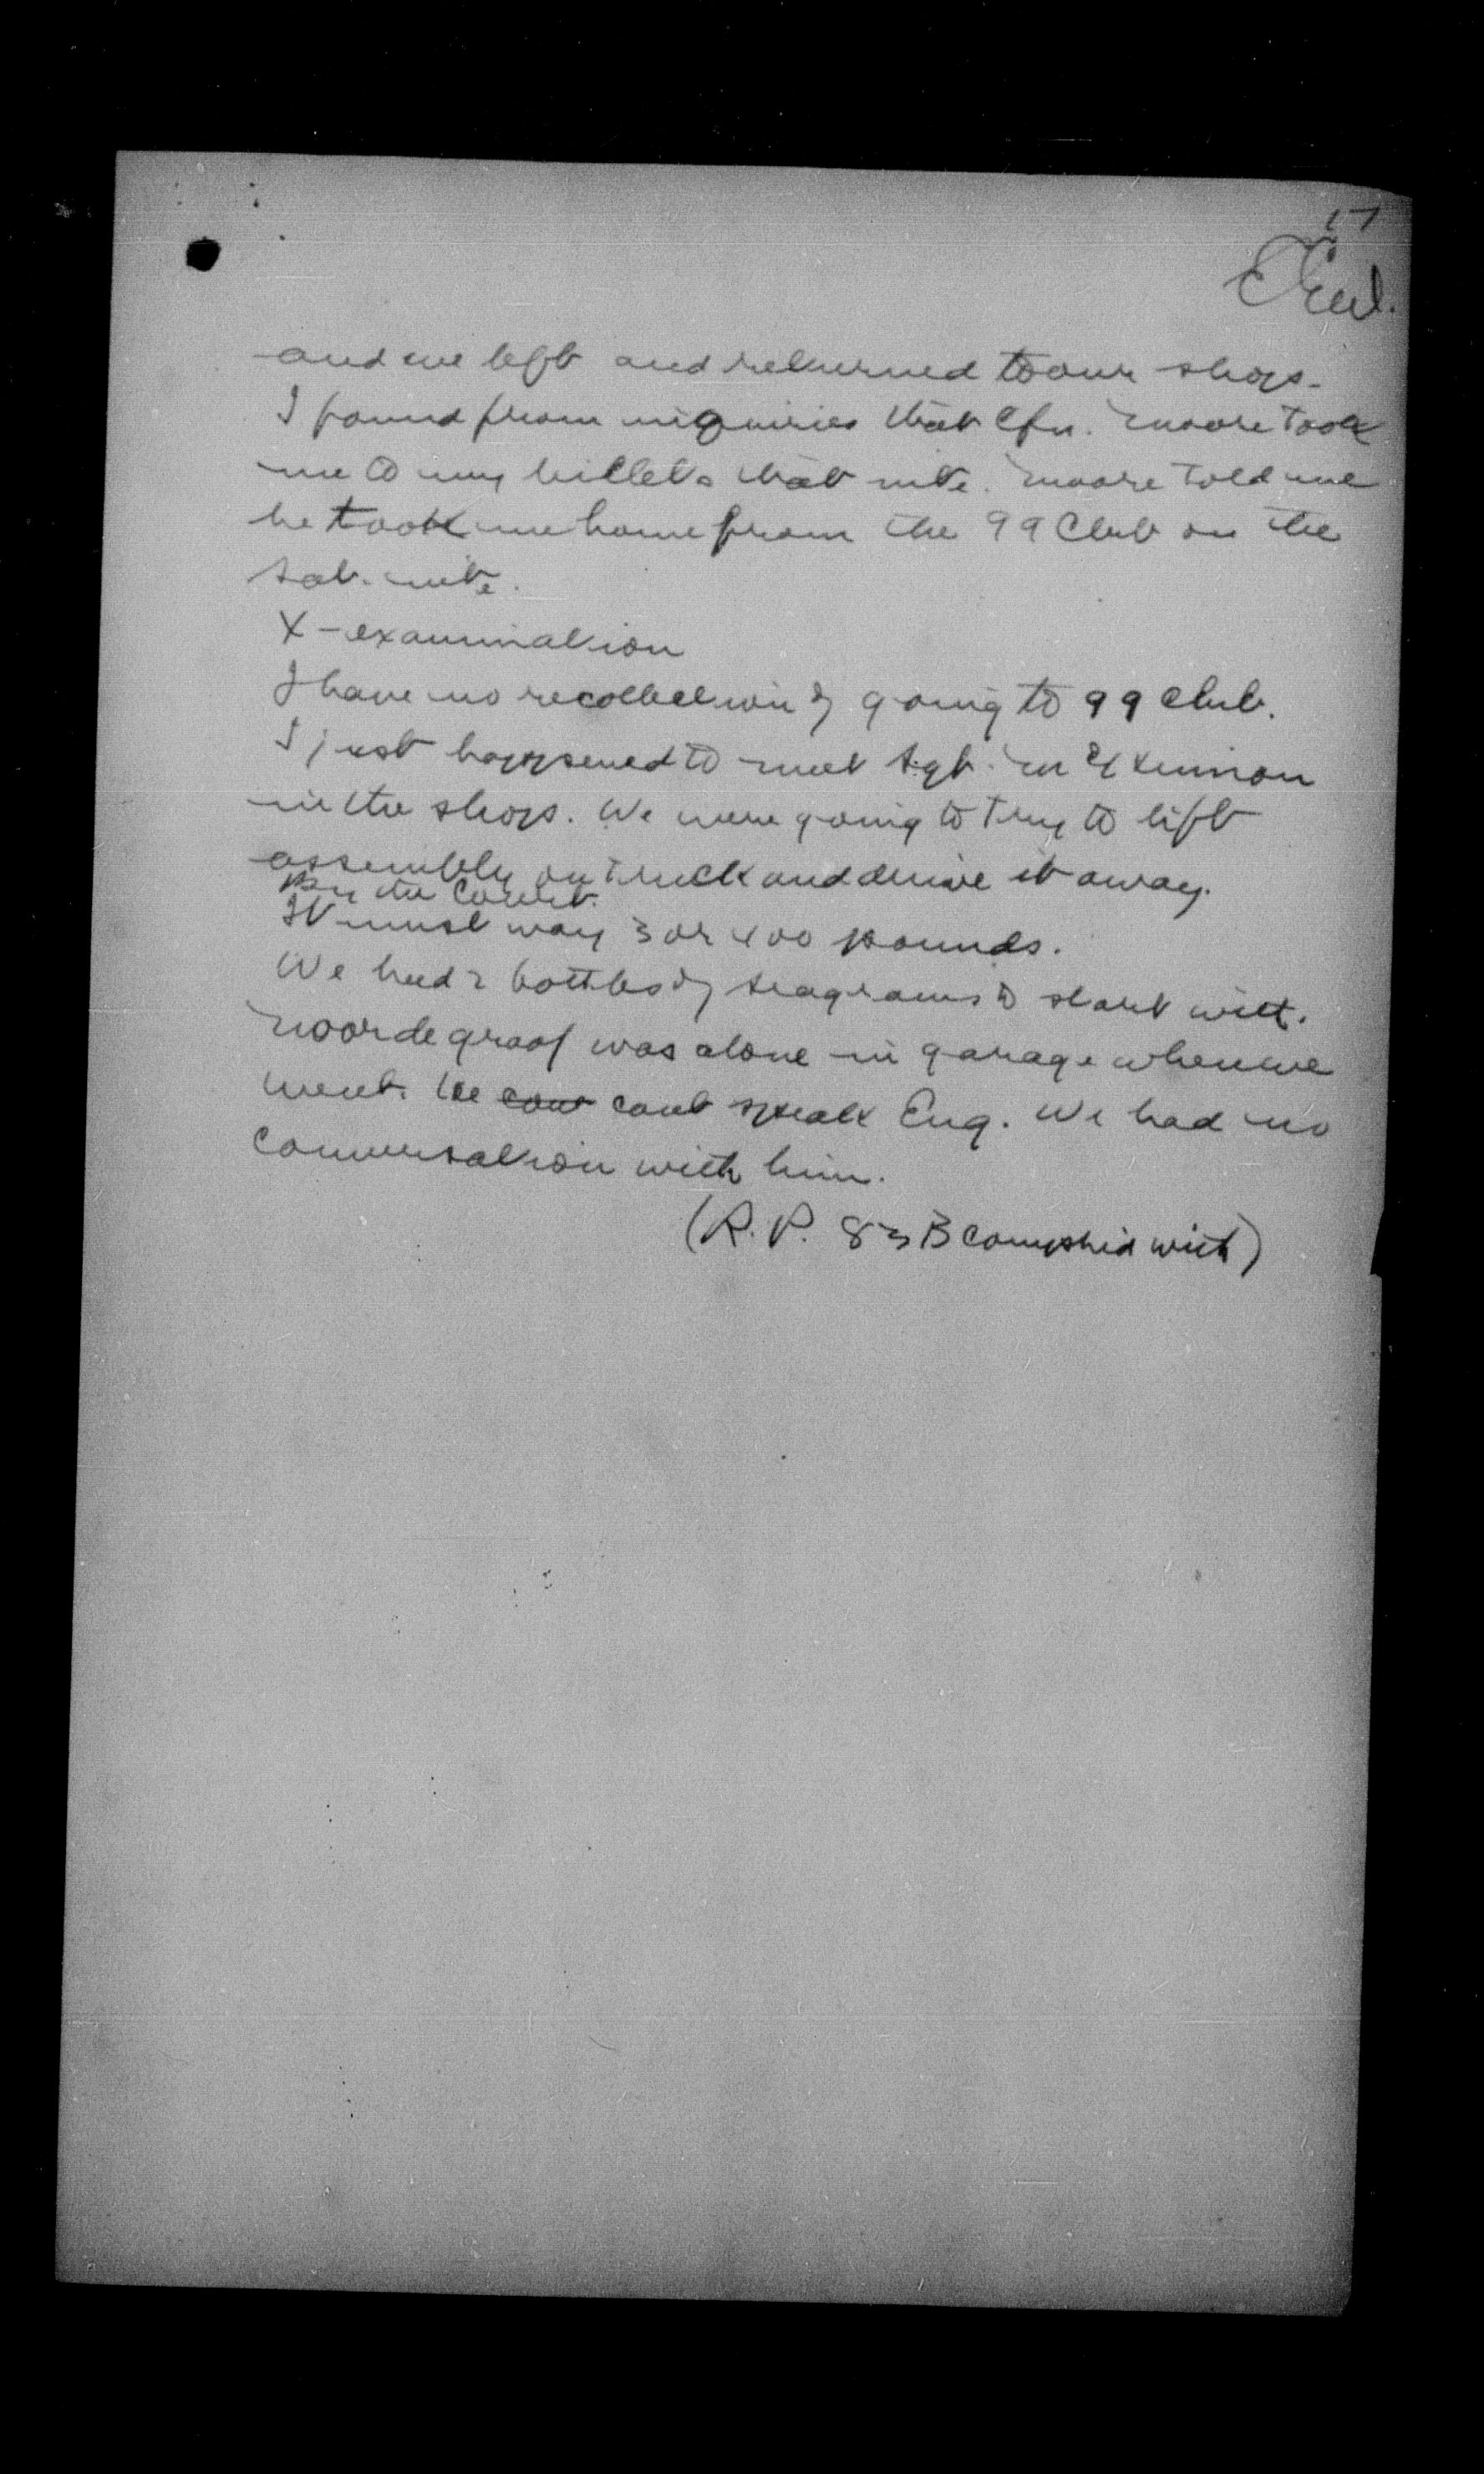 17
and we left and returned to our shop.
I found from inquiries that Cfn. Moore took
me to my billets that nite. Moore told me
he took me home from the 99 Club on the
Sat. nite.
X-examination
I have no recollection of going to 99 Club.
I just happened to meet Sgt. McKinnon
in the shop. We were going to try to lift
assembly on truck and drive it away.
By the Court.
It must way 3 or 400 pounds.
We had 2 bottles of Seagrams to start with.
Noordegraaf was alone in garage when we
went. He cant speak Eng. We had no
conversation with him.
(R.P. 83 B complied with)